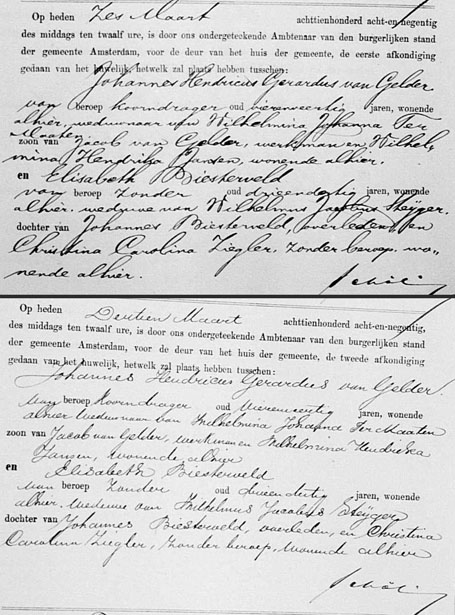 Op heden Zes Maart achttienhonderd acht-en-negentig
des middags ten twaalf ure, is door ons ondergeteekende Ambtenaar van den burgerlijken stand
der gemeente Amsterdam, voor de deur van het huis der gemeente, de eerste afkondiging
gedaan van het huwelijk, hetwelk zal plaats hebben tusschen:
Johannes Hendricus Gerardus van Gelder
van beroep Koorndrager oud vierenveertig jaren, wonende
alhier, weduwnaar van Wilhelmina Johanna Ter
Maaten
zoon van Jacob van Gelder, werkman en Wilhel
mina Hendrika Jansen, wonende alhier.
en Elisabeth Biesterveld
van beroep zonder oud jaren, wonende
alhier. weduwe van Wilhelmus Jacobus Steijger.
dochter van Johannes Biesterveld, overleden, en
Christina Carolina Ziegler, zonder beroep, wo-
nende alhier.
Op heden Dertien Maart achttienhonderd acht-en-negentig,
des middags ten twaalf ure, is door ons ondergeteekende Ambtenaar van den burgerlijken stand
der gemeente Amsterdam, voor de deur van het huis der gemeente, de tweede afkondiging
gedaan van het huwelijk, hetwelk zal plaats hebben tusschen:
Johannes Hendricus Gerardus van Gelder.
van beroep Koorndrager oud vierenveertig jaren, wonende
alhier weduwnaar van Wilhelmina Johanna Ter Maaten
zoon van Jacob van Gelder, werkman en Wilhelmina Hendrika
Jansen, wonende alhier
en Elisabeth Biesterveld
van beroep zonder oud jaren, wonende
alhier. weduwe van Wilhelmus Jacobus Steijger
dochter van Johannes Biesterveld, overleden, en Christina
Carolina Ziegler, zonder beroep, wonende alhier